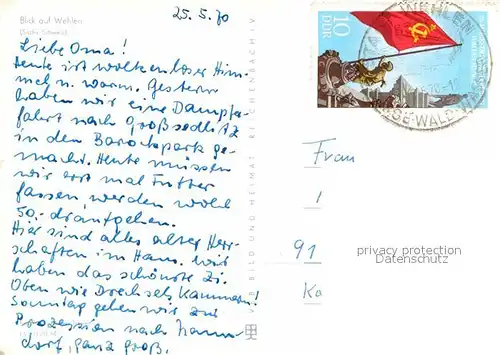 25.5.70
Blick auf Wehlen
(Sächs. Schweiz)
Liebe Oma!
Heute ist wolkenloser Him-
mel u. warm. Gestern
haben wir eine Dampfer-
fahrt nach Großsedlitz
in den Barockpark ge-
macht. Heute müssen
wir erst mal Futter
fassen, werden wohl
50,- draufgehen.
Hier sind alles alter Herr-
schaften im Haus. Wir
haben das schönste Zi.
Oben wie Drechsels Kammern!
Sonntag gehen wir zur
Prozession nach
dorf, ganz groß.
VEB BILD UND HEIMAT REICHENBACH I. V.
10
DDR
WEHLEN
Frau
91
Ko
privacy protection
Datenschutz